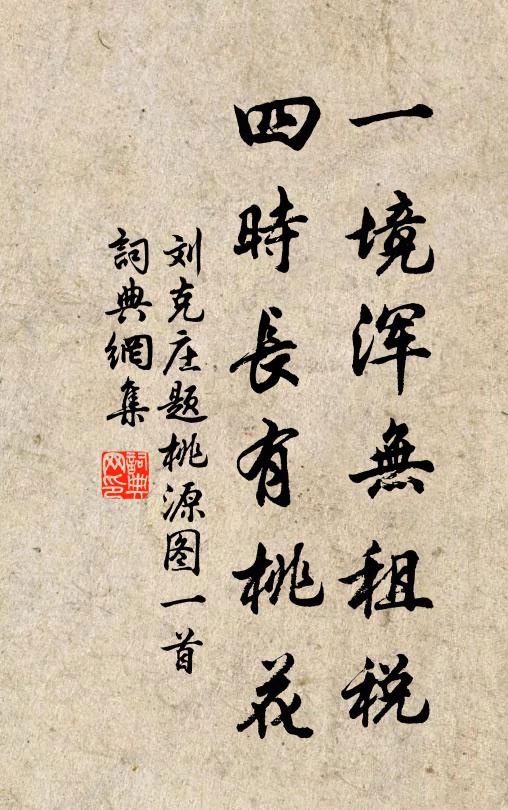 一境浑無租税
四時長有桃花
刘克庄题桃源图一首
詞典網集
詞典網印